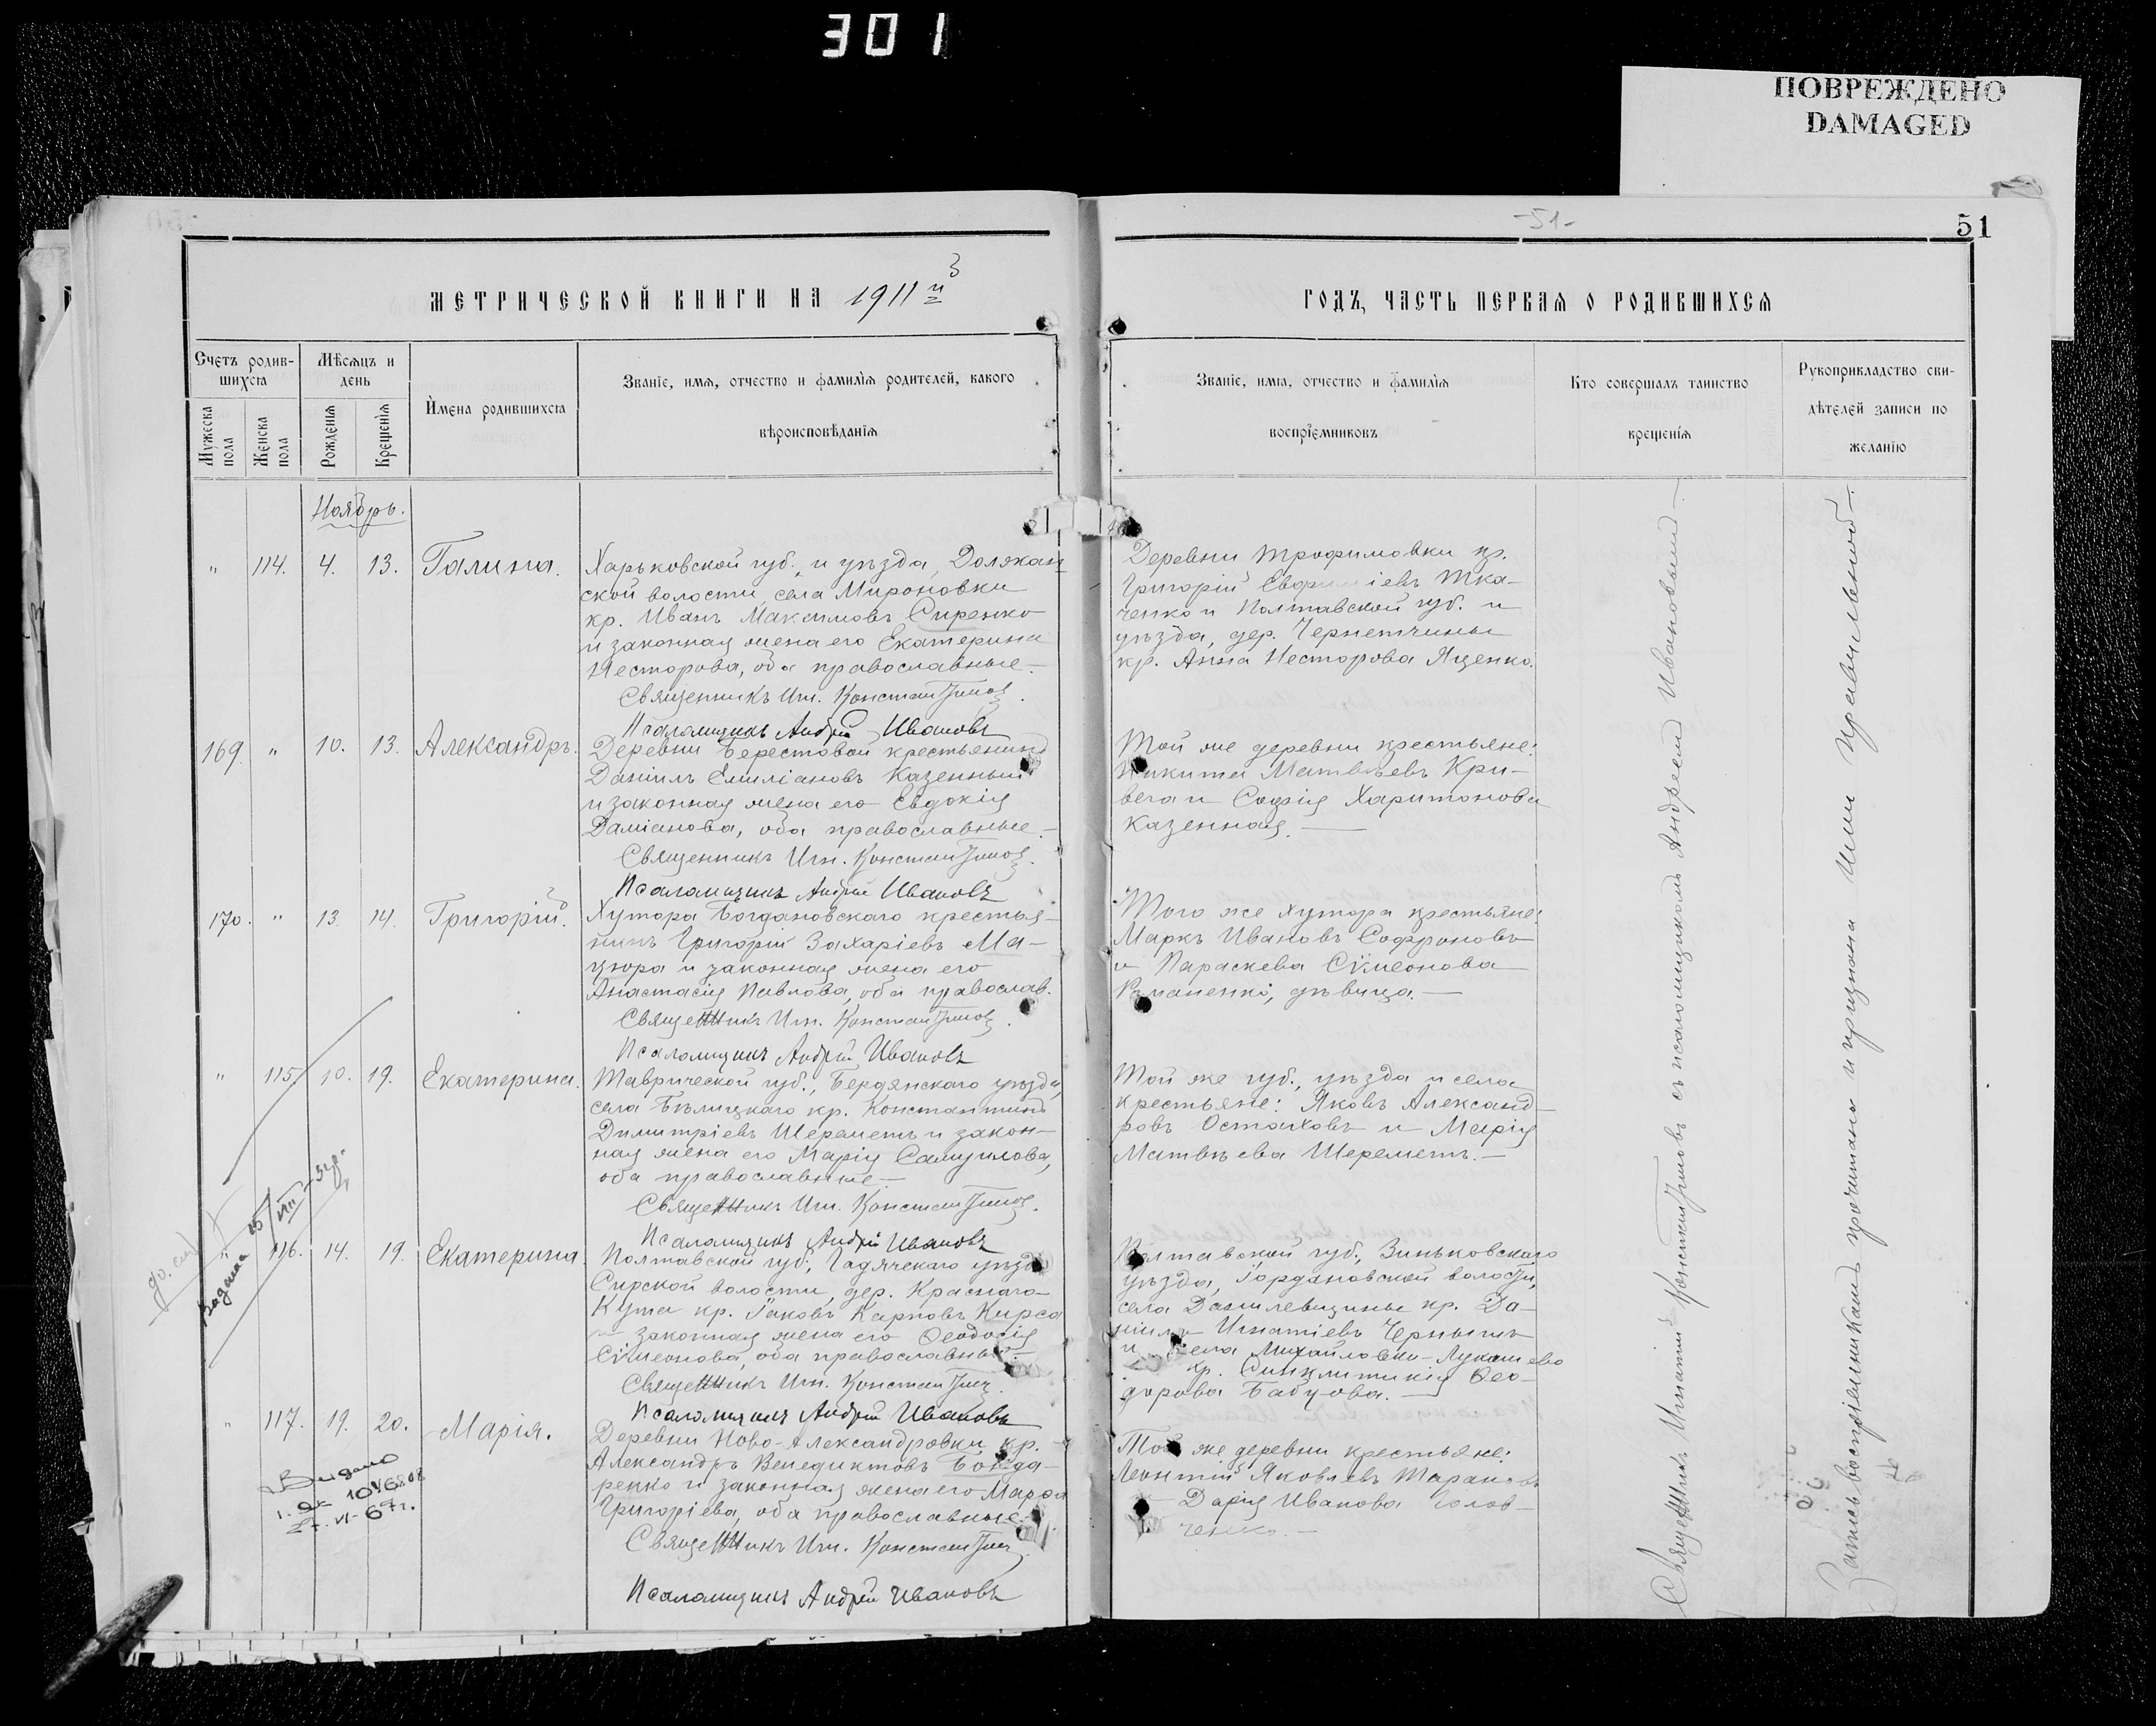 301
ПОВРЕЖДЕНО
DAMAGED
-51-
51
МЕТРИЧЕСКОЙ КНИГИ НА 1911 й
ГОДЪ, ЧАСТЬ ПЕРВАЯ О РОДИВШИХСЯ
Счетъ родив-
шихся
Мужеска пола
Женска пола
Мѣсяцъ и
день
Рожденія
Крещенія
Имена родившихся
Званіе, имя, отчество и фамилія родителей, какого
вѣроисповѣданія
Званіе, имя, отчество и фамилія
воспріемниковъ
Кто совершалъ таинство
крещенія
Рукоприкладство сви-
дѣтелей записи по
желанію
Ноябрь.
" 114. 4. 13. Галина.
Харьковской губ., и уѣзда, Должан
ской волости, села Мироновки
кр. Иванъ Максимовъ Сиренко
и законная жена его Екатерина
Несторова, оба православные.
Священникъ Игн. Константинов.
Псаломщикъ Андрей Ивановъ
Деревни Трофимовки кр.
Григорій Евфиміевъ Тка-
ченко и Полтавской губ. и
уѣзда, дер. Чернетчины
кр. Анна Несторова Яценко.
169. " 10. 13. Александръ.
Деревни Берестовой крестьянинъ
Даніилъ Емиліановъ Казенный
и законная жена его Евдокія
Даміанова, оба православные.
Священникъ Игн. Константинов.
Псаломщикъ Андрей Ивановъ
Той же деревни крестьяне:
Никита Матвѣевъ Кри-
вега и Софія Харитонова
Казенная.
170. " 13. 14. Григорій.
Хутора Богдановскаго крестья-
нинъ Григорій Захаріевъ Ма-
цюра и законная жена его
Анастасія Павлова, оба православ.
Священникъ Игн. Константинов.
Псаломщикъ Андрей Ивановъ
Того же хутора крестьяне:
Маркъ Ивановъ Софроновъ
и Параскева Сѵмеонова
дѣвица.
" 115. 10. 19. Екатерина.
Таврической губ., Бердянскаго уѣзда,
села Бѣлицкаго кр. Константинъ
Димитріевъ Шереметъ и закон-
ная жена его Марія Самуилова,
оба православные
Священникъ Игн. Константинов.
Псаломщикъ Андрей Ивановъ
Той же губ., уѣзда и села
крестьяне: Яковъ Александ-
ровъ Остаховъ и Марія
Матвѣева Шереметъ.
" 116. 14. 19. Екатерина.
Полтавской губ., Гадячскаго уѣзда
волости, дер. Краснаго-
Кута кр. Іаковъ Карповъ Кирса
и законная жена его Ѳеодосія
Сѵмеонова, оба православные.
Священникъ Игн. Константинов.
Псаломщикъ Андрей Ивановъ
Полтавской губ., Зиньковскаго
уѣзда, волости,
села Данилевщины кр. Да-
ніилъ Игнатіевъ Чернышъ
и села Михайловки-Лукашево
кр. Синклитикія Ѳео-
дорова
" 117. 19. 20. Марія.
Деревни Ново-Александровки кр.
Александръ Венедиктовъ Бонда-
ренко и законная жена его Марѳа
Григоріева, оба православные.
Священникъ Игн. Константинов.
Псаломщикъ Андрей Ивановъ
Той же деревни крестьяне:
Леонтій Яковлевъ Тарановъ
Дарія Иванова Голов-
ченко.
Выдано
67 г.
Священникъ Игнатій Константиновъ съ псаломщикомъ Андреемъ Ивановымъ
Запись воспріемникамъ прочитана и признана ими правильной